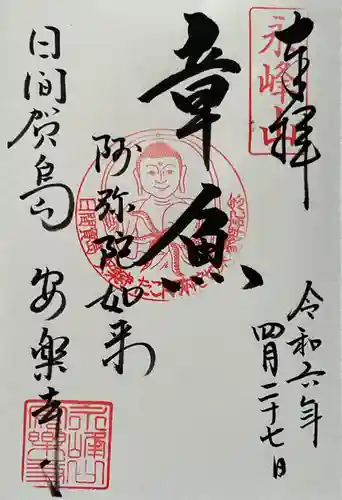 奉拝
永峰山
令和六年
四月二十七日
章魚
阿弥陀如来
日間賀島
安楽寺